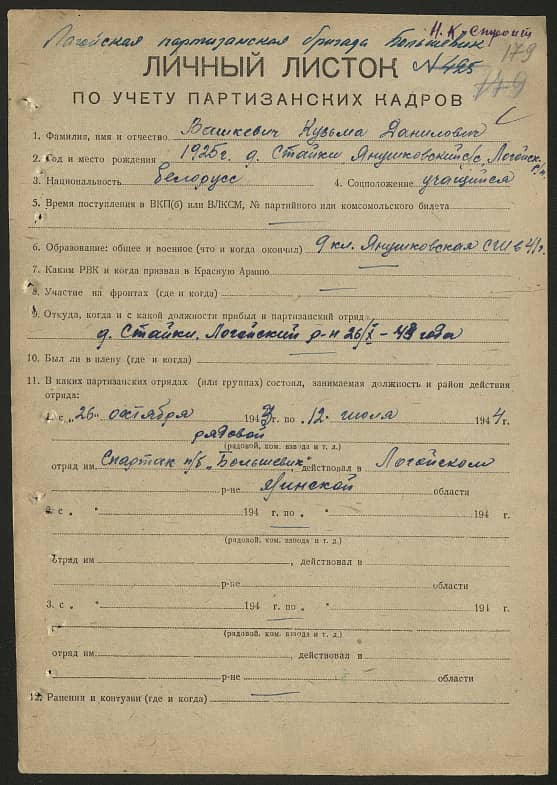 Н. К. Спуронт
Логойская партизанская бригада Большевик
179
ЛИЧНЫЙ ЛИСТОК №425
149
ПО УЧЕТУ ПАРТИЗАНСКИХ КАДРОВ
1. Фамилия, имя и отчество Вашкевич Кузьма Данилович
2. Год и место рождения 1925г. д. Стайки Янушковский с/с, Логойск. р-н.
3. Национальность белорусс 4. Соцположение учащийся
5. Время поступления в ВКП(б) или ВЛКСМ, № партийного или комсомольского билета
6. Образование: общее и военное (что и когда окончил) 9 кл. Янушковская СШ в 41г.
7. Каким РВК и когда призван в Красную Армию —
8. Участие на фронтах (где и когда) —
9. Откуда, когда и с какой должности прибыл в партизанский отряд
д. Стайки. Логойский р-н 26/X-43 года
10. Был ли в плену (где и когда) —
11. В каких партизанских отрядах (или группах) состоял, занимаемая должность и район действия
отряда:
1. с „26„ октября 1943 г. по „12„ июля 1944 г.
рядовой
(рядовой, ком. взвода и т. д.)
отряд им Спартак п/б „Большевик" действовал в Логойском
р-не Минской области
2. с „ " 194 г. по „ " 194 г.
(рядовой, ком. взвода и т. д.)
отряд им , действовал в
р-не области
3. с „ " 194 г. по „ " 194 г.
(рядовой, ком. взвода и т. д.)
отряд им , действовал в
р-не области
12. Ранения и контузии (где и когда) —